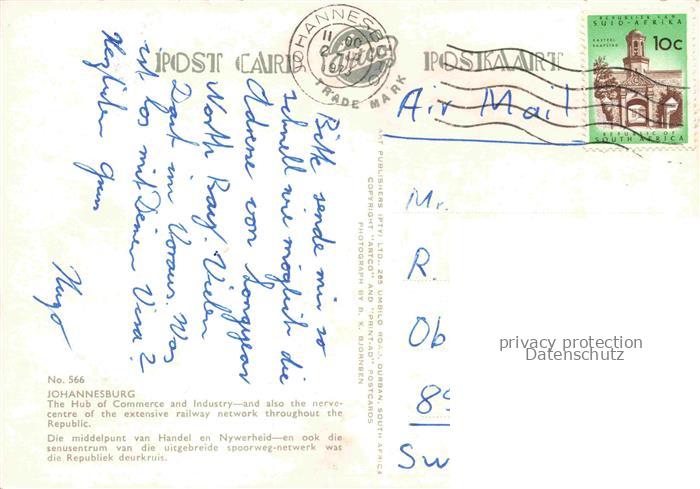 POST CARD
POSKAART
JOHANNESB
Artco
TRADE MARK
REPUBLIEK VAN
SUID-AFRIKA
KASTEEL
KAAPSTAD
10c
REPUBLIC OF
SOUTH AFRICA
Air Mail
Bitte sende mir so
schnell wie möglich die
Adresse von Longyear
North Bay. Vielen
Dank im Voraus. Was
ist los mit Deinem Visa?
Herzlichen Gruss
Hugo
ART PUBLISHERS (PTY) LTD., 285 UMBILO ROAD, DURBAN, SOUTH AFRICA
COPYRIGHT "ARTCO" AND "PRINT-AD" POSTCARDS
PHOTOGRAPH BY B. K. BJORNSEN
Mr.
R.
Ob
89
Sw
privacy protection
Datenschutz
No. 566
JOHANNESBURG
The Hub of Commerce and Industry—and also the nerve-
centre of the extensive railway network throughout the
Republic.
Die middelpunt van Handel en Nywerheid—en ook die
senusentrum van die uitgebreide spoorweg-netwerk was
die Republiek deurkruis.